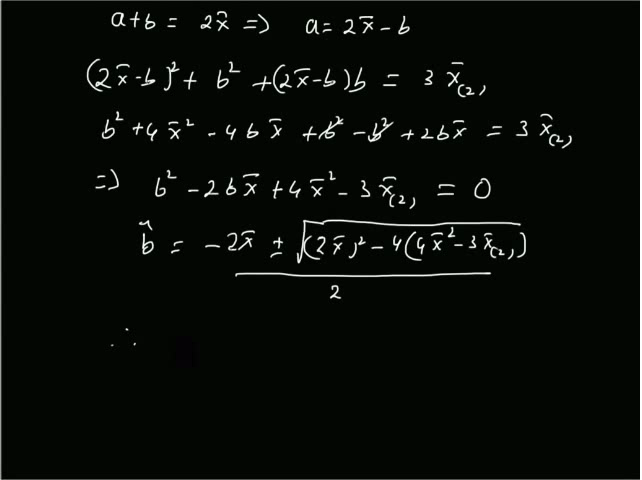 a+b = 2x̄ => a = 2x̄ - b
(2x̄-b)² + b² + (2x̄-b)b = 3 x̄₍₂₎
b² + 4x̄² - 4bx̄ + b² - b² + 2bx̄ = 3x̄₍₂₎
=> b² - 2bx̄ + 4x̄² - 3x̄₍₂₎ = 0
b̂ = -2x̄ ± √(2x̄)² - 4(4x̄² - 3x̄₍₂₎)
2
∴